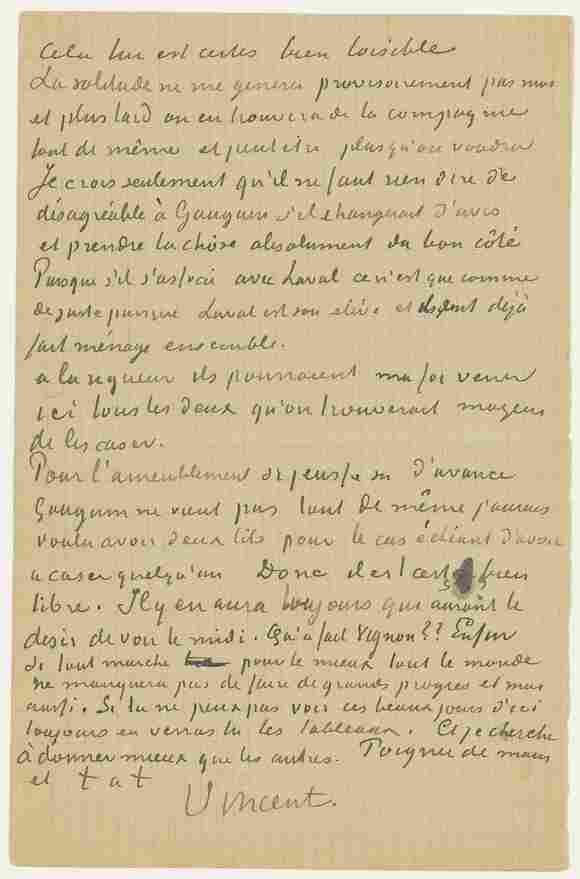 Cela lui est certes bien loisible
La solitude ne me genera provisoirement pas moi
et plus tard on en trouvera de la compagnie
tout de même et peut être plus qu'on voudra
Je crois seulement qu'il ne faut rien dire de
désagréable à Gauguin s'il changeait d'avis
et prendre la chose absolument du bon côté
Puisque s'il s'associe avec Laval ce n'est que comme
de juste puisque Laval est son elève et ils ont déjà
fait ménage ensemble.
a la rigueur ils pourraient ma foi venir
ici tous les deux qu'on trouverait moyens
de les caser.
Pour l'ameublement si j'eusse su d'avance
Gauguin ne vient pas tout de même j'aurais
voulu avoir deux lits pour le cas échéant d'avoir
a caser quelqu'un Donc il est bien
libre. Il y en aura toujours qui auront le
desir de voir le midi. Qu'a fait Vignon?? Enfin
si tout marche pour le mieux tout le monde
ne manquera pas de faire de grands progres et moi
aussi. Si tu ne peux pas voir ces beaux jours d'ici
toujours en verras tu les tableaux. Et je cherche
à donner mieux que les autres. Poignee de main
et t a t
Vincent.